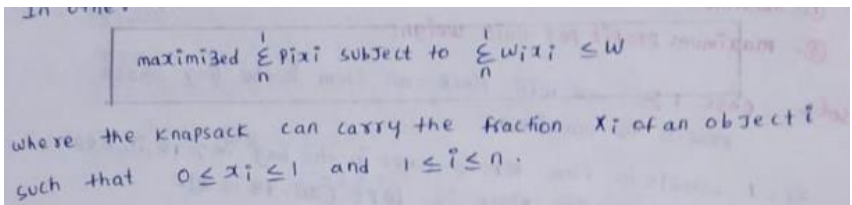 maximized Σ Pixi subject to Σ wixi ≤ W
1 1
n n
where the knapsack can carry the fraction Xi of an object i
such that 0 ≤ xi ≤ 1 and 1 ≤ i ≤ n.